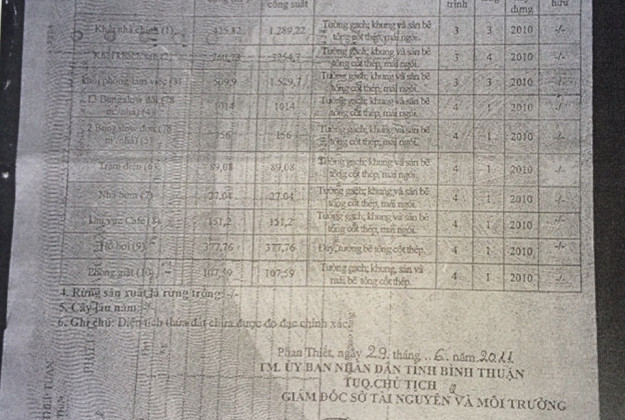 công suất trình dựng hữu
Khối nhà chính (1) 425,82 1.289,22 Tường gạch; khung và sàn bê 3 3 2010 -/-
tông cốt thép, mái ngói.
Tường gạch; khung và sàn bê 3 4 2010 -/-
tông cốt thép, mái ngói.
Khối phòng làm việc (3) 509,9 1.529,7 Tường gạch; khung và sàn bê 3 3 2010 -/-
tông cốt thép, mái ngói.
13 Bungalow đôi (78 1014 1014 Tường gạch; khung và sàn bê 4 1 2010 -/-
m²/nhà) (4) tông cốt thép, mái ngói.
2 Bungalow đơn (78 156 156 Tường gạch; khung và sàn bê 4 1 2010 -/-
m²/nhà) (5) tông cốt thép, mái ngói.
Trạm điện (6) 89,08 89,08 Tường gạch; khung và sàn bê 4 1 2010 -/-
tông cốt thép, mái ngói.
Nhà bơm (7) 27,04 27,04 Tường gạch; khung và sàn bê 4 1 2010 -/-
tông cốt thép, mái ngói.
Khu vực Café (8) 151,2 151,2 Tường gạch; khung và sàn bê 4 1 2010 -/-
tông cốt thép, mái ngói.
Hồ bơi (9) 377,76 377,76 Đáy, tường bê tông cốt thép. 4 1 2010 -/-
Phòng giặt (10) 107,59 107,59 Tường gạch; khung, sàn và 4 1 2010 -/-
mái bê tông cốt thép.
4. Rừng sản xuất là rừng trồng: -/-
5. Cây lâu năm: -/-
6. Ghi chú: Diện tích thửa đất chưa được đo đạc chính xác.
Phan Thiết, ngày 29 tháng 6 năm 2011
TM. ỦY BAN NHÂN DÂN TỈNH BÌNH THUẬN
TUQ.CHỦ TỊCH
GIÁM ĐỐC SỞ TÀI NGUYÊN VÀ MÔI TRƯỜNG